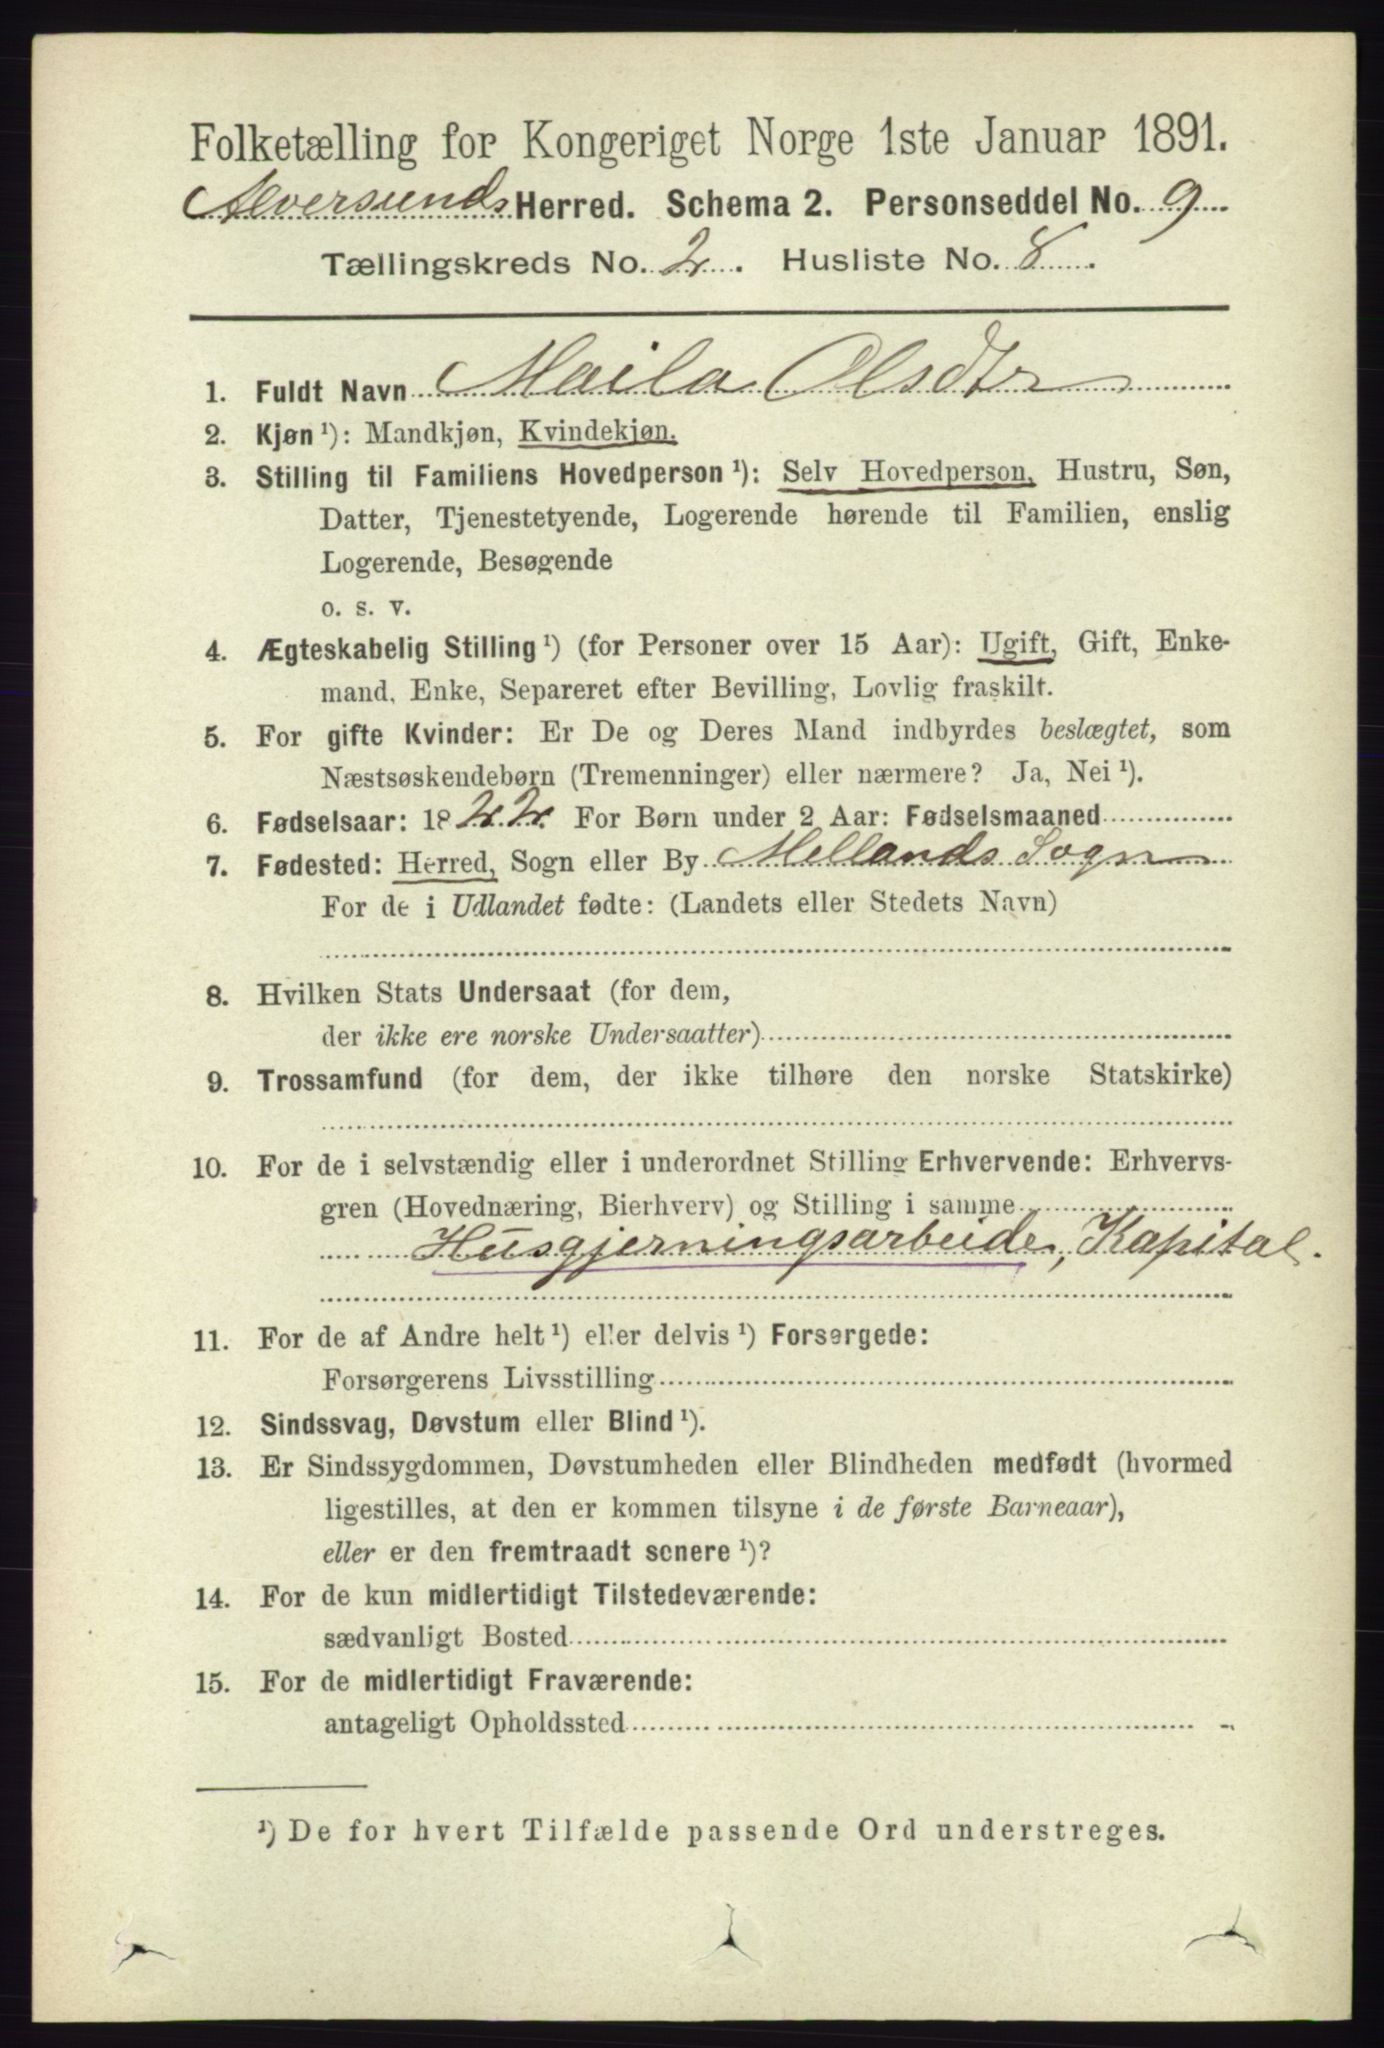 Folketælling for Kongeriget Norge 1ste Januar 1891.
Alversunds Herred. Schema 2. Personseddel No. 9
Tællingskreds No. 2. Husliste No. 8.
1. Fuldt Navn Maila Olsdtr
2. Kjøn ¹): Mandkjøn, Kvindekjøn.
3. Stilling til Familiens Hovedperson ¹): Selv Hovedperson, Hustru, Søn,
Datter, Tjenestetyende, Logerende hørende til Familien, enslig
Logerende, Besøgende
o. s. v.
4. Ægteskabelig Stilling ¹) (for Personer over 15 Aar): Ugift, Gift, Enke-
mand, Enke, Separeret efter Bevilling, Lovlig fraskilt.
5. For gifte Kvinder: Er De og Deres Mand indbyrdes beslægtet, som
Næstsøskendebørn (Tremenninger) eller nærmere? Ja, Nei ¹).
6. Fødselsaar: 1822. For Børn under 2 Aar: Fødselsmaaned
7. Fødested: Herred, Sogn eller By Mellands Sogn
For de i Udlandet fødte: (Landets eller Stedets Navn)
8. Hvilken Stats Undersaat (for dem,
der ikke ere norske Undersaatter)
9. Trossamfund (for dem, der ikke tilhøre den norske Statskirke)
10. For de i selvstændig eller i underordnet Stilling Erhvervende: Erhvervs-
gren (Hovednæring, Bierhverv) og Stilling i samme
Husgjerningsarbeide, Kapital.
11. For de af Andre helt ¹) eller delvis ¹) Forsørgede:
Forsørgerens Livsstilling
12. Sindssvag, Døvstum eller Blind ¹).
13. Er Sindssygdommen, Døvstumheden eller Blindheden medfødt (hvormed
ligestilles, at den er kommen tilsyne i de første Barneaar),
eller er den fremtraadt senere ¹)?
14. For de kun midlertidigt Tilstedeværende:
sædvanligt Bosted
15. For de midlertidigt Fraværende:
antageligt Opholdssted
¹) De for hvert Tilfælde passende Ord understreges.